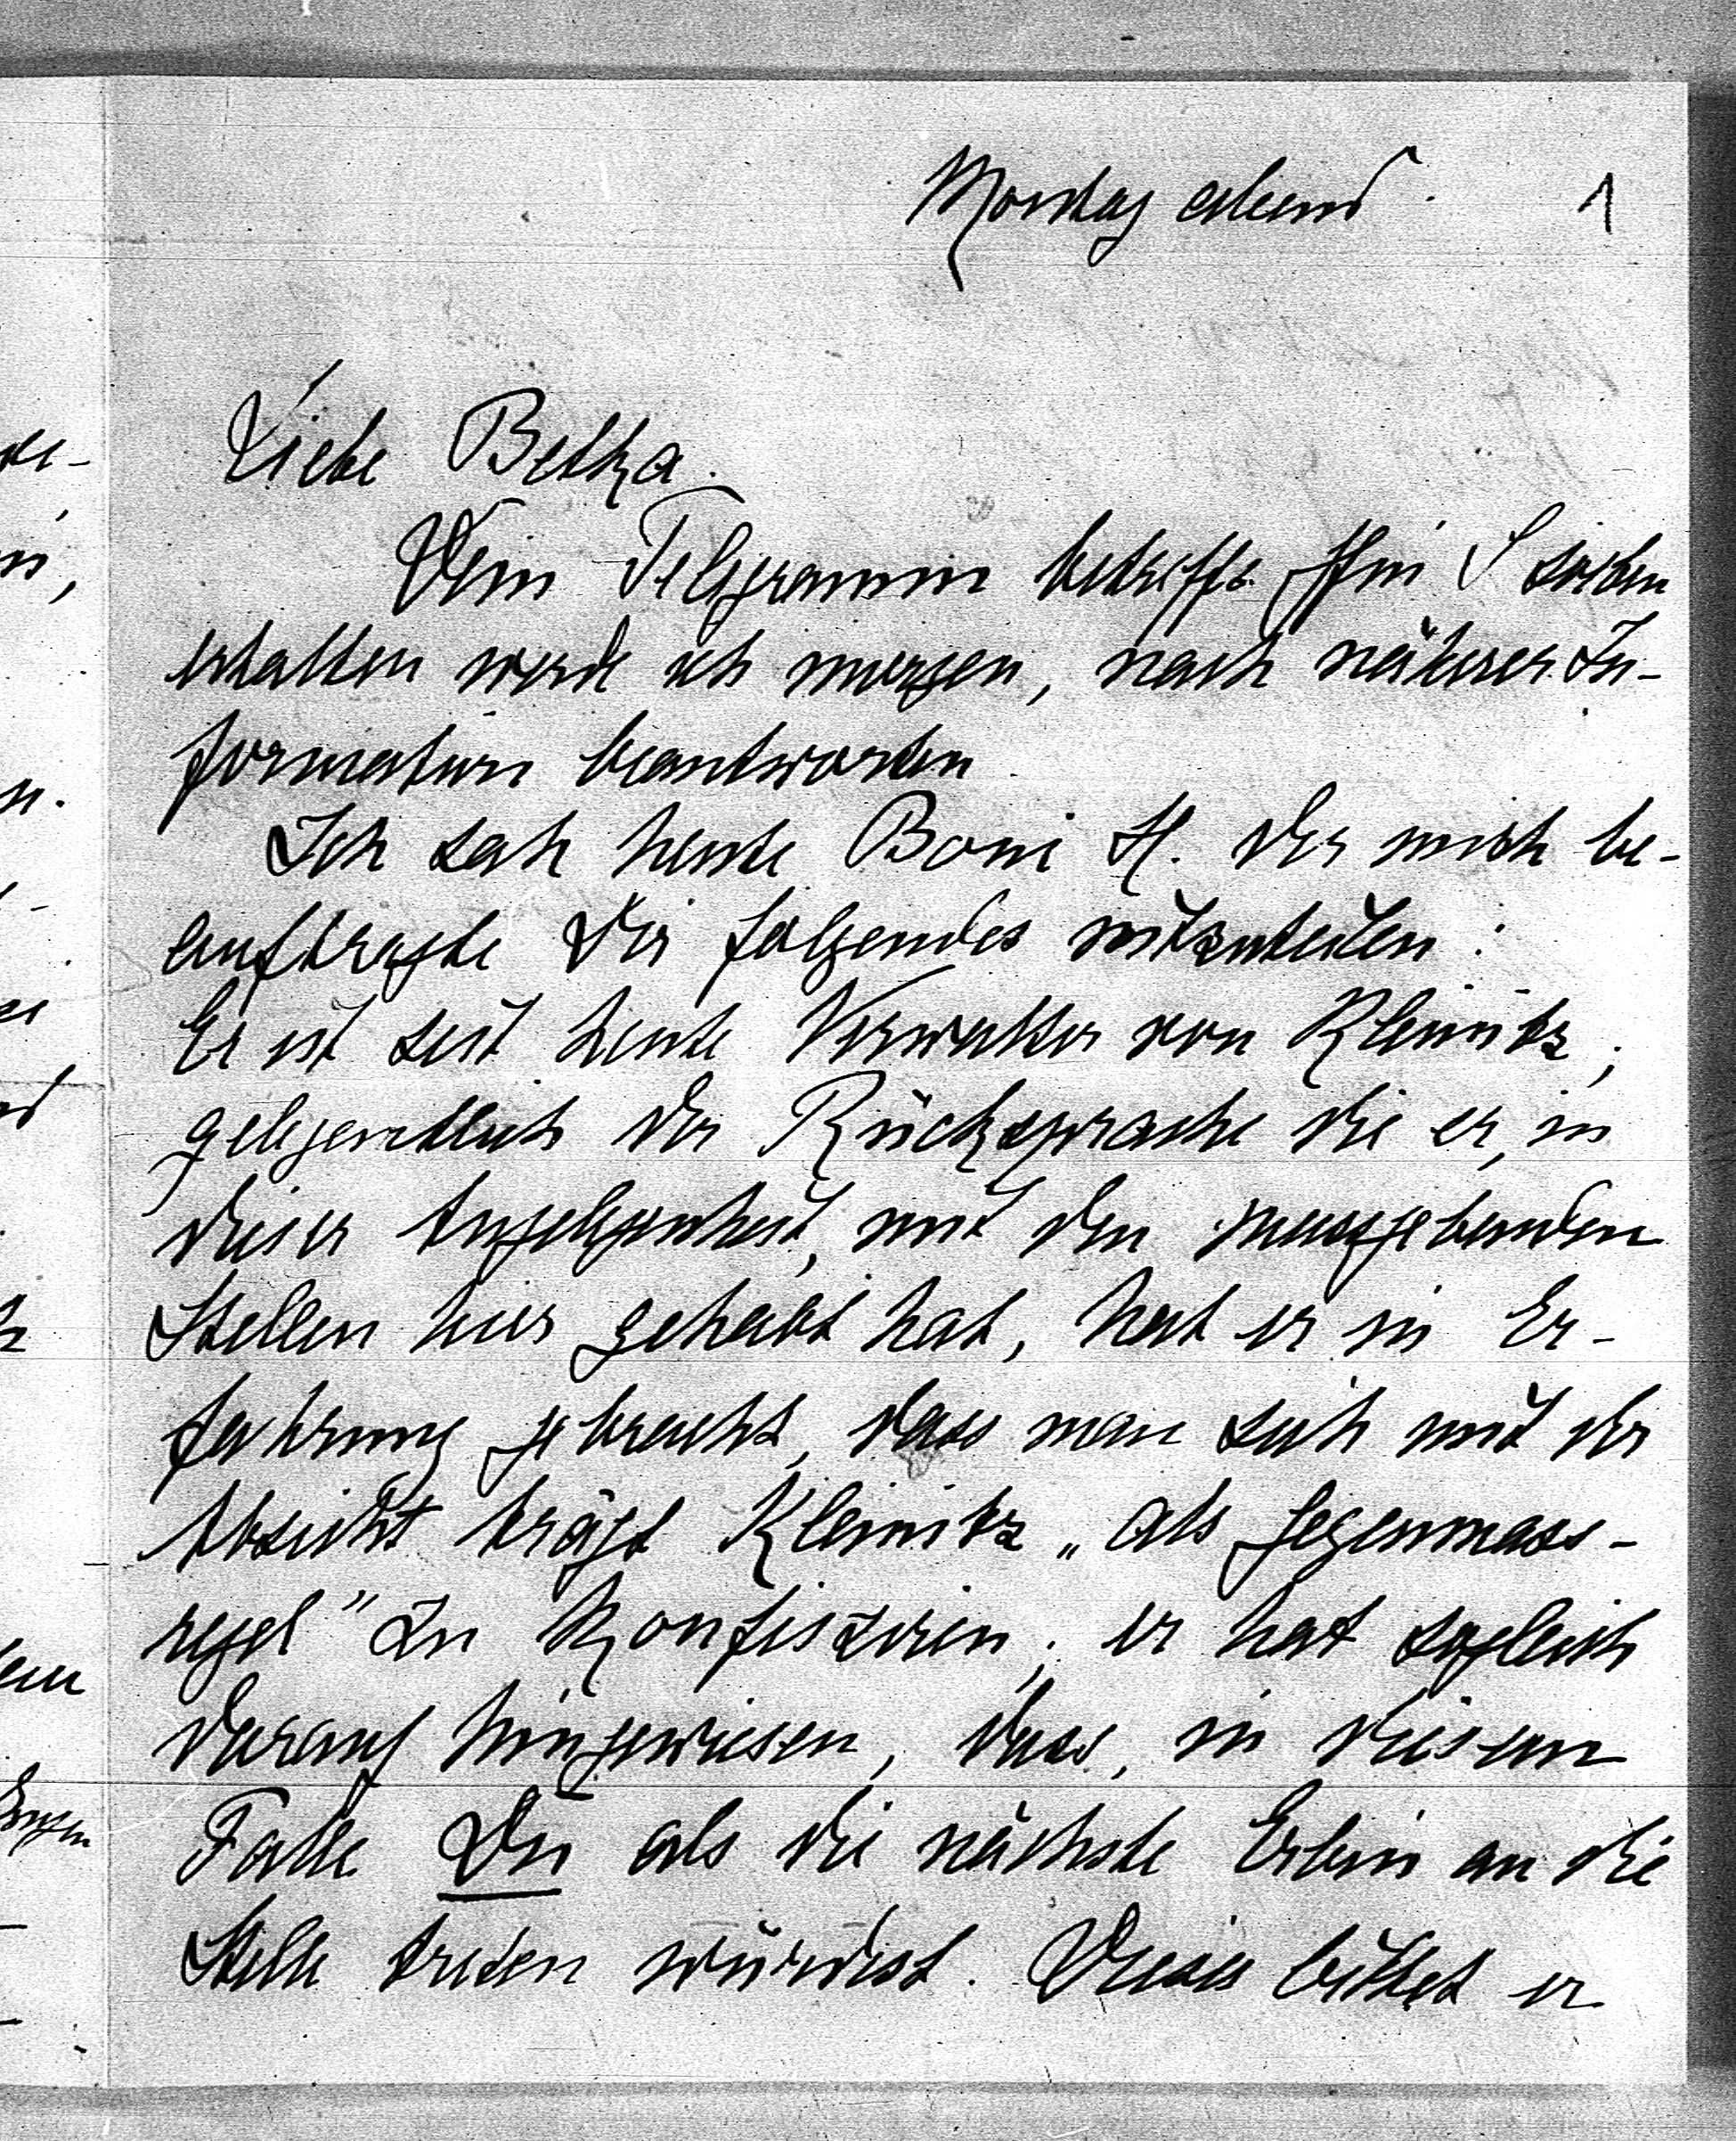 Montag abend. 1
Liebe Betka.
Dein Telegramm betreffs S soeben
erhalten werde ich morgen, nach näherer In-
formation beantworten
Ich sah heute Boni H. der mich be-
auftragte Dir folgendes mitzuteilen:
Er ist seit heute Verwalter von Kleinitz;
gelegentlich der Rücksprache die er, in
dieser Angelegenheit, mit den massgebenden
Stellen hier gehabt hat, hat er in Er-
fahrung gebracht, dass man sich mit der
Absicht trägt Kleinitz „als Gegenmass-
regel" zu konfisziren; er hat sogleich
darauf hingewiesen, dass, in diesem
Falle Du als die nächste Erbin an die
Stelle treten würdest. Dieses bittet er